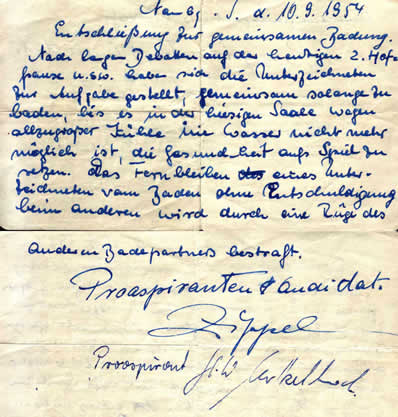 Nau bg. S. d. 10.9.1954
Entschließung zur gemeinsamen Badung.
Nach langen Debatten auf der heutigen 2. Hof-
pause u.s.w. haben sich die Unterzeichneten
zur Aufgabe gestellt, gemeinsam solange zu
baden, bis es in der hiesigen Saale wegen
allzugroßer Kühle im Wasser nicht mehr
möglich ist, die Gesundheit aufs Spiel zu
setzen. Das Fernbleiben des eines Unter-
zeichneten vom Baden ohne Entschuldigung
beim anderen wird durch eine Rüge des
anderen Badepartners bestraft.
Proaspiranten Kandidat.
Zippel
Proaspirant H.W.